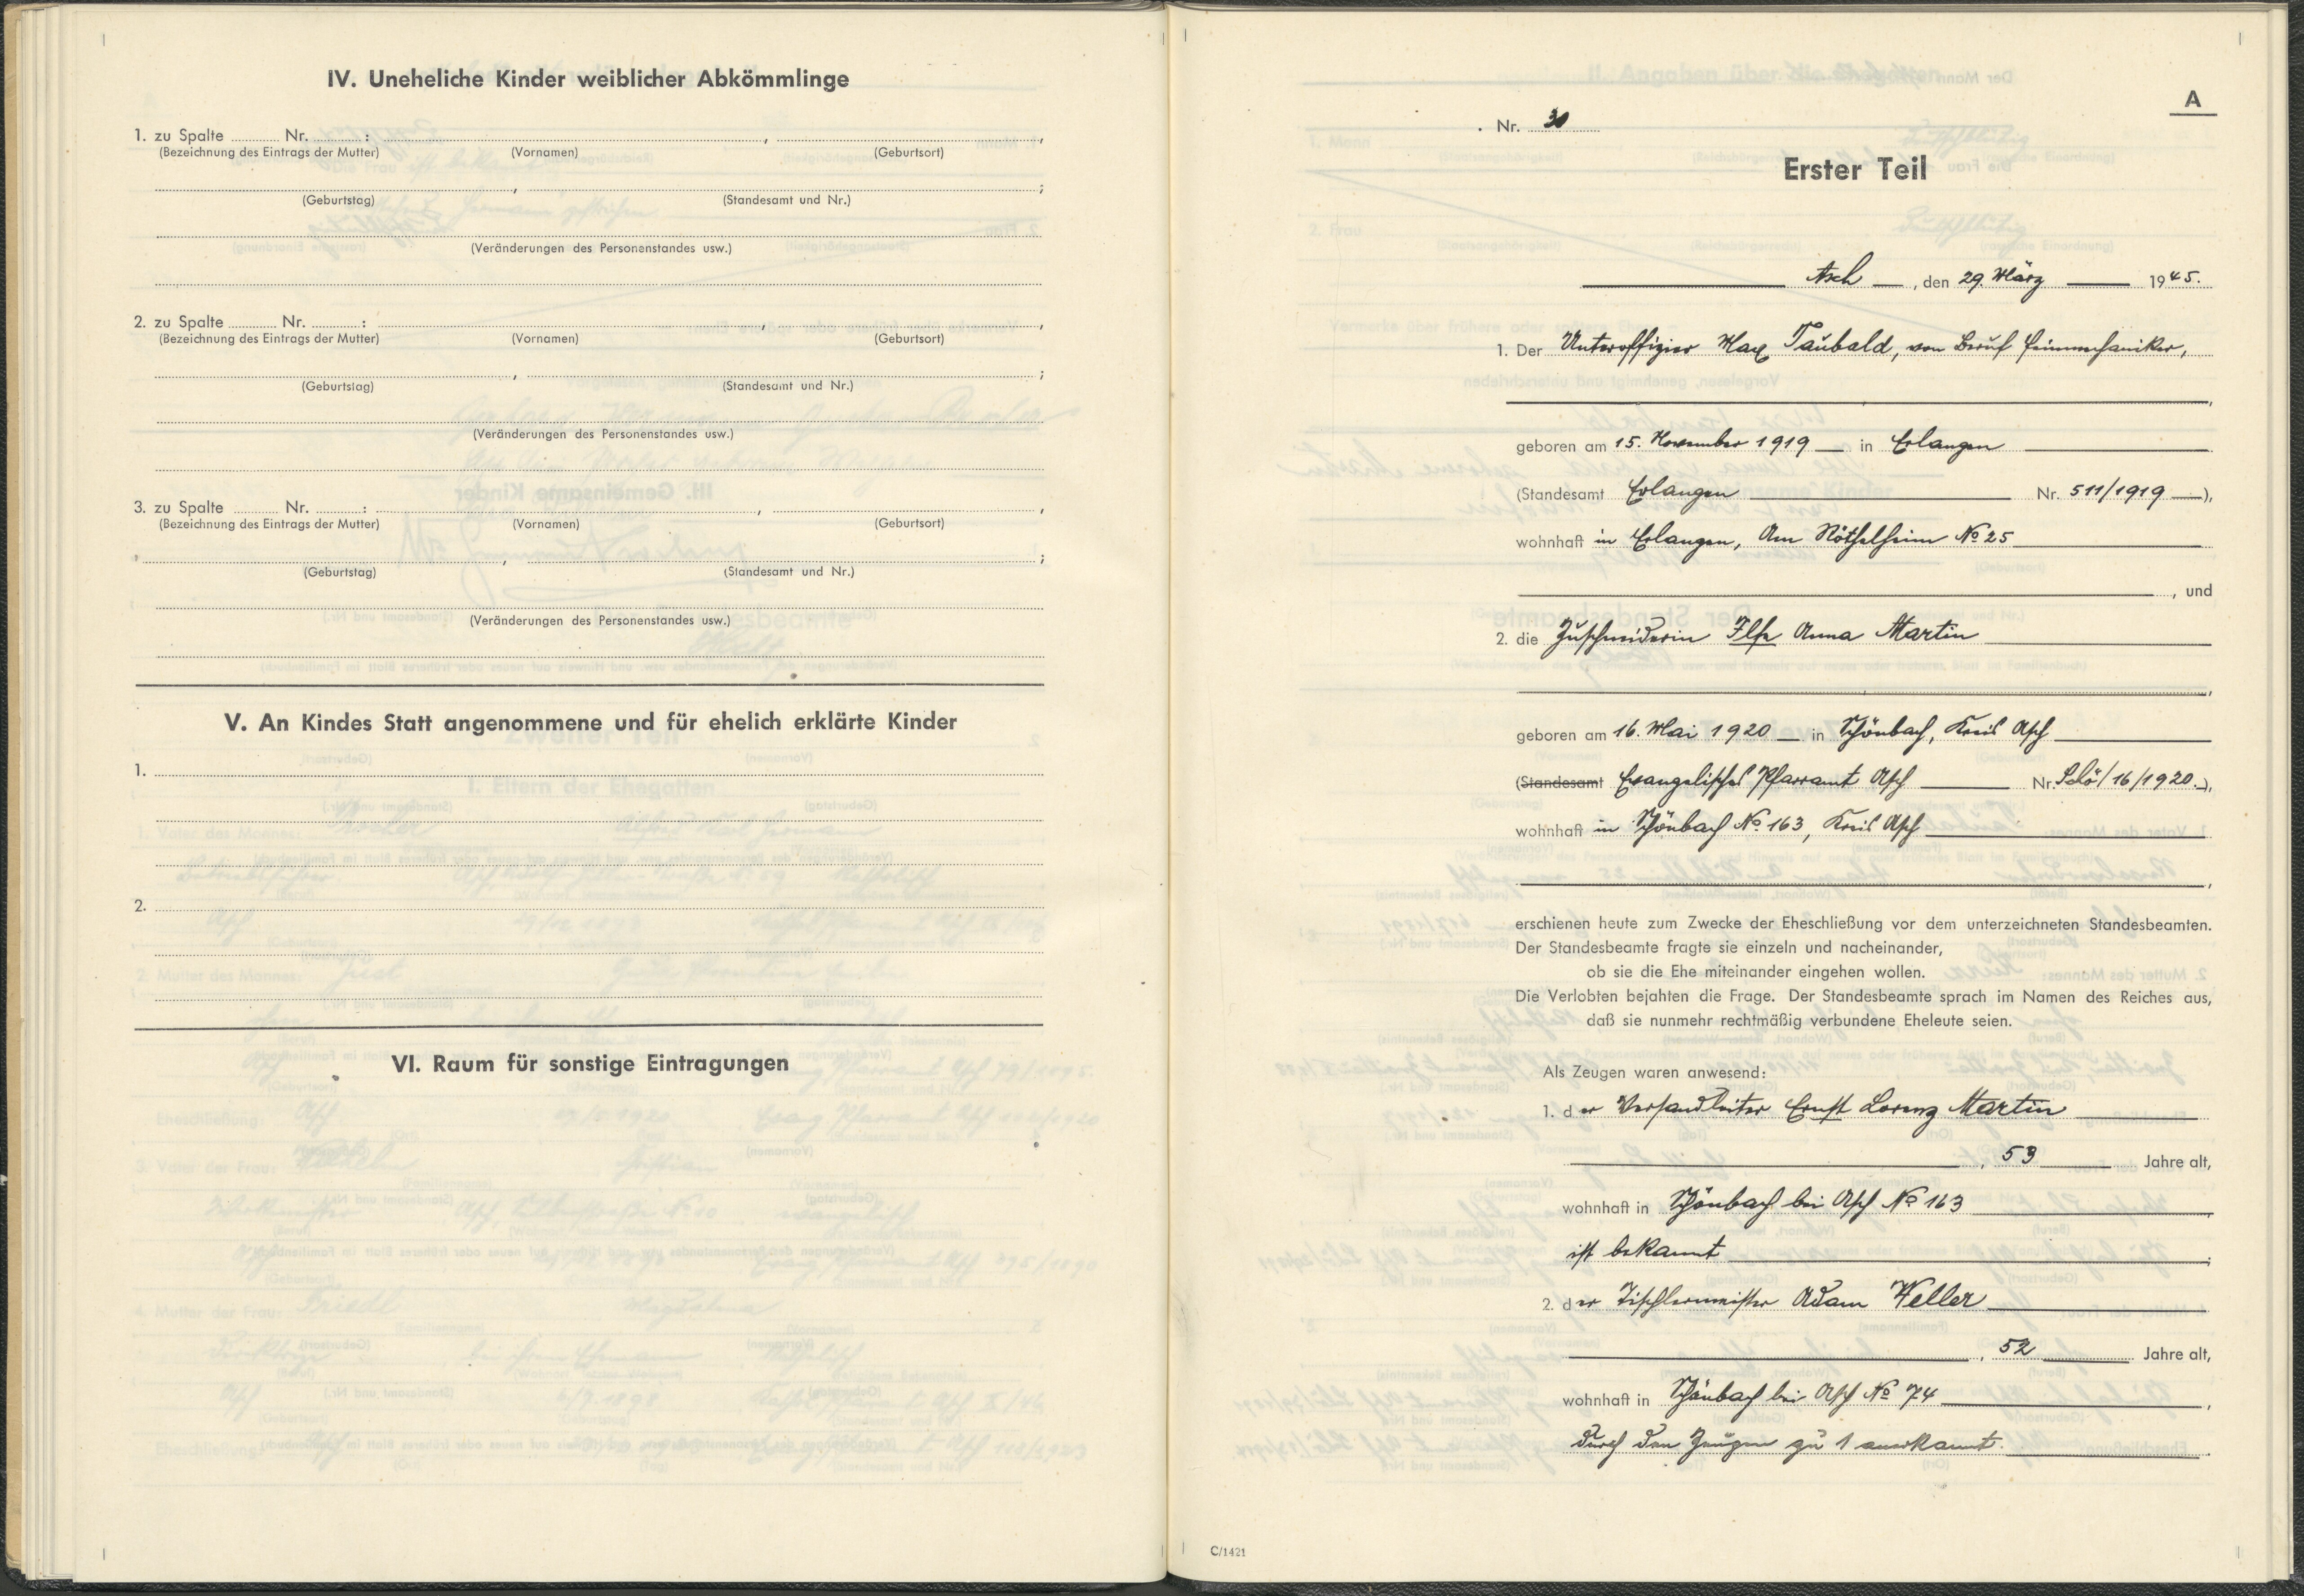 IV. Uneheliche Kinder weiblicher Abkömmlinge
1. zu Spalte Nr. : , ,
(Bezeichnung des Eintrags der Mutter) (Vornamen) (Geburtsort)
, ;
(Geburtstag) (Standesamt und Nr.)
(Veränderungen des Personenstandes usw.)
2. zu Spalte Nr. : , ,
(Bezeichnung des Eintrags der Mutter) (Vornamen) (Geburtsort)
, ;
(Geburtstag) (Standesamt und Nr.)
(Veränderungen des Personenstandes usw.)
3. zu Spalte Nr. : , ,
(Bezeichnung des Eintrags der Mutter) (Vornamen) (Geburtsort)
, ;
(Geburtstag) (Standesamt und Nr.)
(Veränderungen des Personenstandes usw.)
V. An Kindes Statt angenommene und für ehelich erklärte Kinder
1.
2.
VI. Raum für sonstige Eintragungen
A
Nr. 30
Erster Teil
Asch, den 29. März 1945.
1. Der Unteroffizier Max Taubald, von Beruf Feinmechaniker,
,
geboren am 15. November 1919 in Erlangen
(Standesamt Erlangen Nr. 511/1919),
wohnhaft in Erlangen, Am Röthelheim No 25
, und
2. die Zuschneiderin Ilse Anna Martin
,
geboren am 16. Mai 1920 in Schönbach, Kreis Asch
(Standesamt Evangelisches Pfarramt Asch Nr. Schö/16/1920.),
wohnhaft in Schönbach No 163, Kreis Asch
,
erschienen heute zum Zwecke der Eheschließung vor dem unterzeichneten Standesbeamten.
Der Standesbeamte fragte sie einzeln und nacheinander,
ob sie die Ehe miteinander eingehen wollen.
Die Verlobten bejahten die Frage. Der Standesbeamte sprach im Namen des Reiches aus,
daß sie nunmehr rechtmäßig verbundene Eheleute seien.
Als Zeugen waren anwesend:
1. der Versandleiter Ernst Lorenz Martin
, 53 Jahre alt,
wohnhaft in Schönbach bei Asch No 163
ist bekannt ;
2. der Tischlermeister Adam Weller
, 52 Jahre alt,
wohnhaft in Schönbach bei Asch No 74 ,
durch den Zeugen zu 1 anerkannt.
C/1421